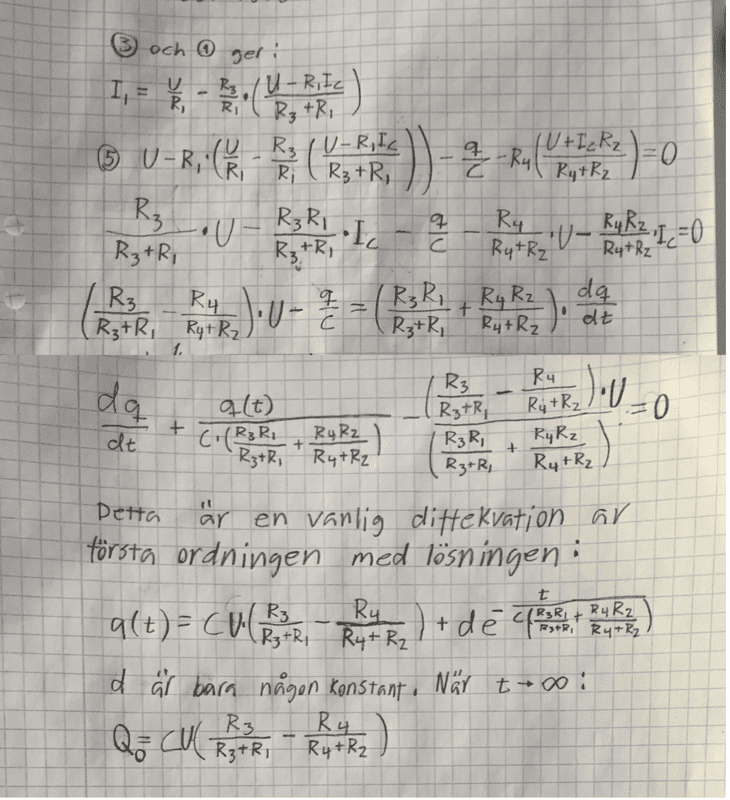 ③ och ① ger:
I₁ = U/R₁ - R₃/R₁ · ((U - R₁I_c)/(R₃ + R₁))
⑤ U - R₁·(U/R₁ - R₃/R₁ ((U - R₁I_c)/(R₃ + R₁))) - q/C - R₄((U + I_cR₂)/(R₄ + R₂)) = 0
R₃/(R₃ + R₁) · U - R₃R₁/(R₃ + R₁) · I_c - q/C - R₄/(R₄ + R₂) · U - R₄R₂/(R₄ + R₂) · I_c = 0
(R₃/(R₃ + R₁) - R₄/(R₄ + R₂)) · U - q/C = (R₃R₁/(R₃ + R₁) + R₄R₂/(R₄ + R₂)) · dq/dt
dq/dt + q(t)/(C·(R₃R₁/(R₃ + R₁) + R₄R₂/(R₄ + R₂))) - ((R₃/(R₃ + R₁) - R₄/(R₄ + R₂)) · U)/(R₃R₁/(R₃ + R₁) + R₄R₂/(R₄ + R₂)) = 0
Detta är en vanlig diffekvation av
första ordningen med lösningen:
q(t) = CU·(R₃/(R₃ + R₁) - R₄/(R₄ + R₂)) + de^(-t/(C(R₃R₁/(R₃ + R₁) + R₄R₂/(R₄ + R₂))))
d är bara någon konstant. När t → ∞:
Q₀ = CU(R₃/(R₃ + R₁) - R₄/(R₄ + R₂))